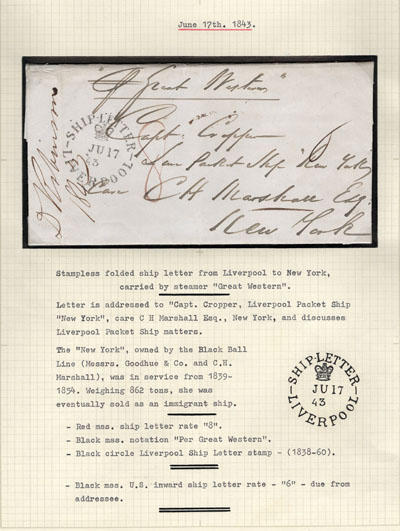 June 17th. 1843.
"P Great Western"
SHIP-LETTER
JU 17
43
LIVERPOOL
Capt. Cropper
Packet Ship "New York"
Care C H Marshall Esq.
New York
Stampless folded ship letter from Liverpool to New York,
carried by steamer "Great Western".
Letter is addressed to "Capt. Cropper, Liverpool Packet Ship
"New York", care C H Marshall Esq., New York, and discusses
Liverpool Packet Ship matters.
The "New York", owned by the Black Ball
Line (Messrs. Goodhue & Co. and C.H.
Marshall), was in service from 1839-
1854. Weighing 862 tons, she was
eventually sold as an immigrant ship.
SHIP-LETTER
JU 17
43
LIVERPOOL
- Red mss. ship letter rate "8".
- Black mss. notation "Per Great Western".
- Black circle Liverpool Ship Letter stamp - (1838-60).
- Black mss. U.S. inward ship letter rate - "6" - due from
addressee.